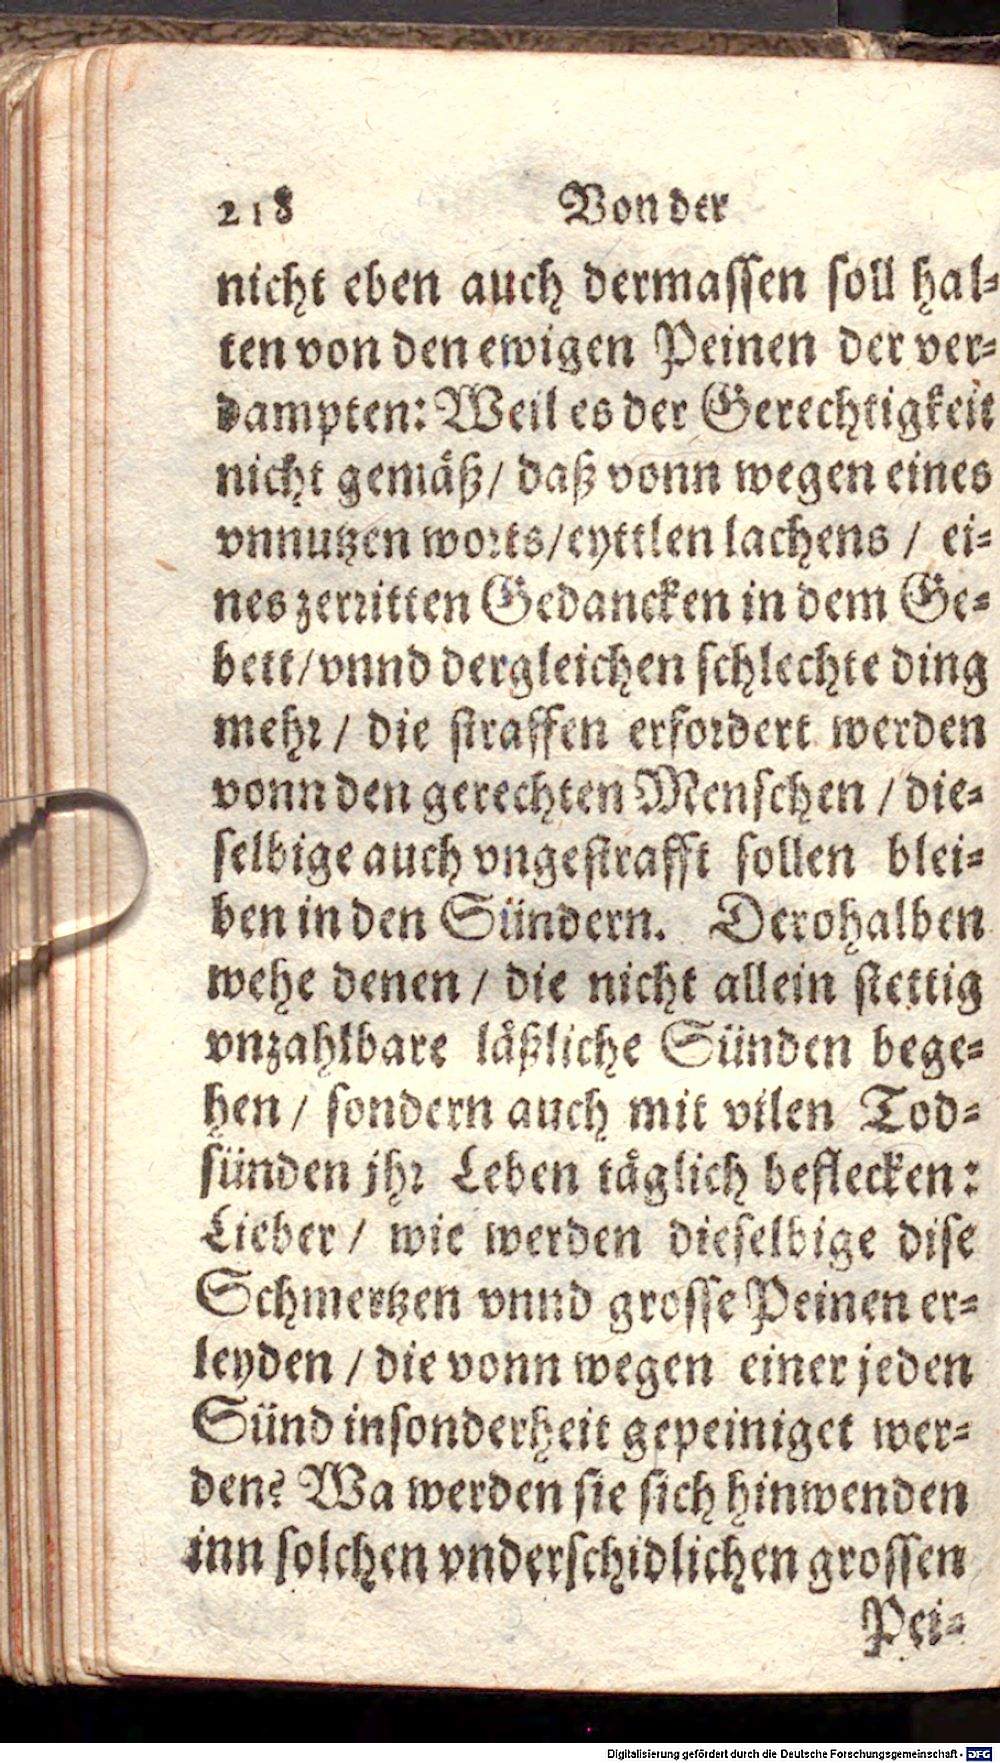 218 Von der
nicht eben auch dermassen soll hal-
ten von den ewigen Peinen der ver-
dampten: Weil es der Gerechtigkeit
nicht gemäß/ daß vonn wegen eines
vnnutzen worts/ eyttlen lachens / ei-
nes zerritten Gedancken in dem Ge-
bett/ vnnd dergleichen schlechte ding
mehr / die straffen erfordert werden
vonn den gerechten Menschen / die-
selbige auch vngestrafft sollen blei-
ben in den Sündern. Derohalben
wehe denen / die nicht allein stettig
vnzahlbare läßliche Sünden bege-
hen / sondern auch mit vilen Tod-
sünden jhr Leben täglich beflecken:
Lieber / wie werden dieselbige dise
Schmertzen vnnd grosse Peinen er-
leyden / die vonn wegen einer jeden
Sünd insonderheit gepeiniget wer-
den? Wa werden sie sich hinwenden
inn solchen vnderschidlichen grossen
Pei-
Digitalisierung gefördert durch die Deutsche Forschungsgemeinschaft - DFG